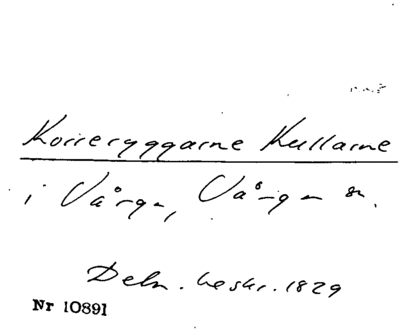 Korreryggarne Kullarne
i Vårga, Vånga sn.
Deln. beskr. 1829
Nr 10891